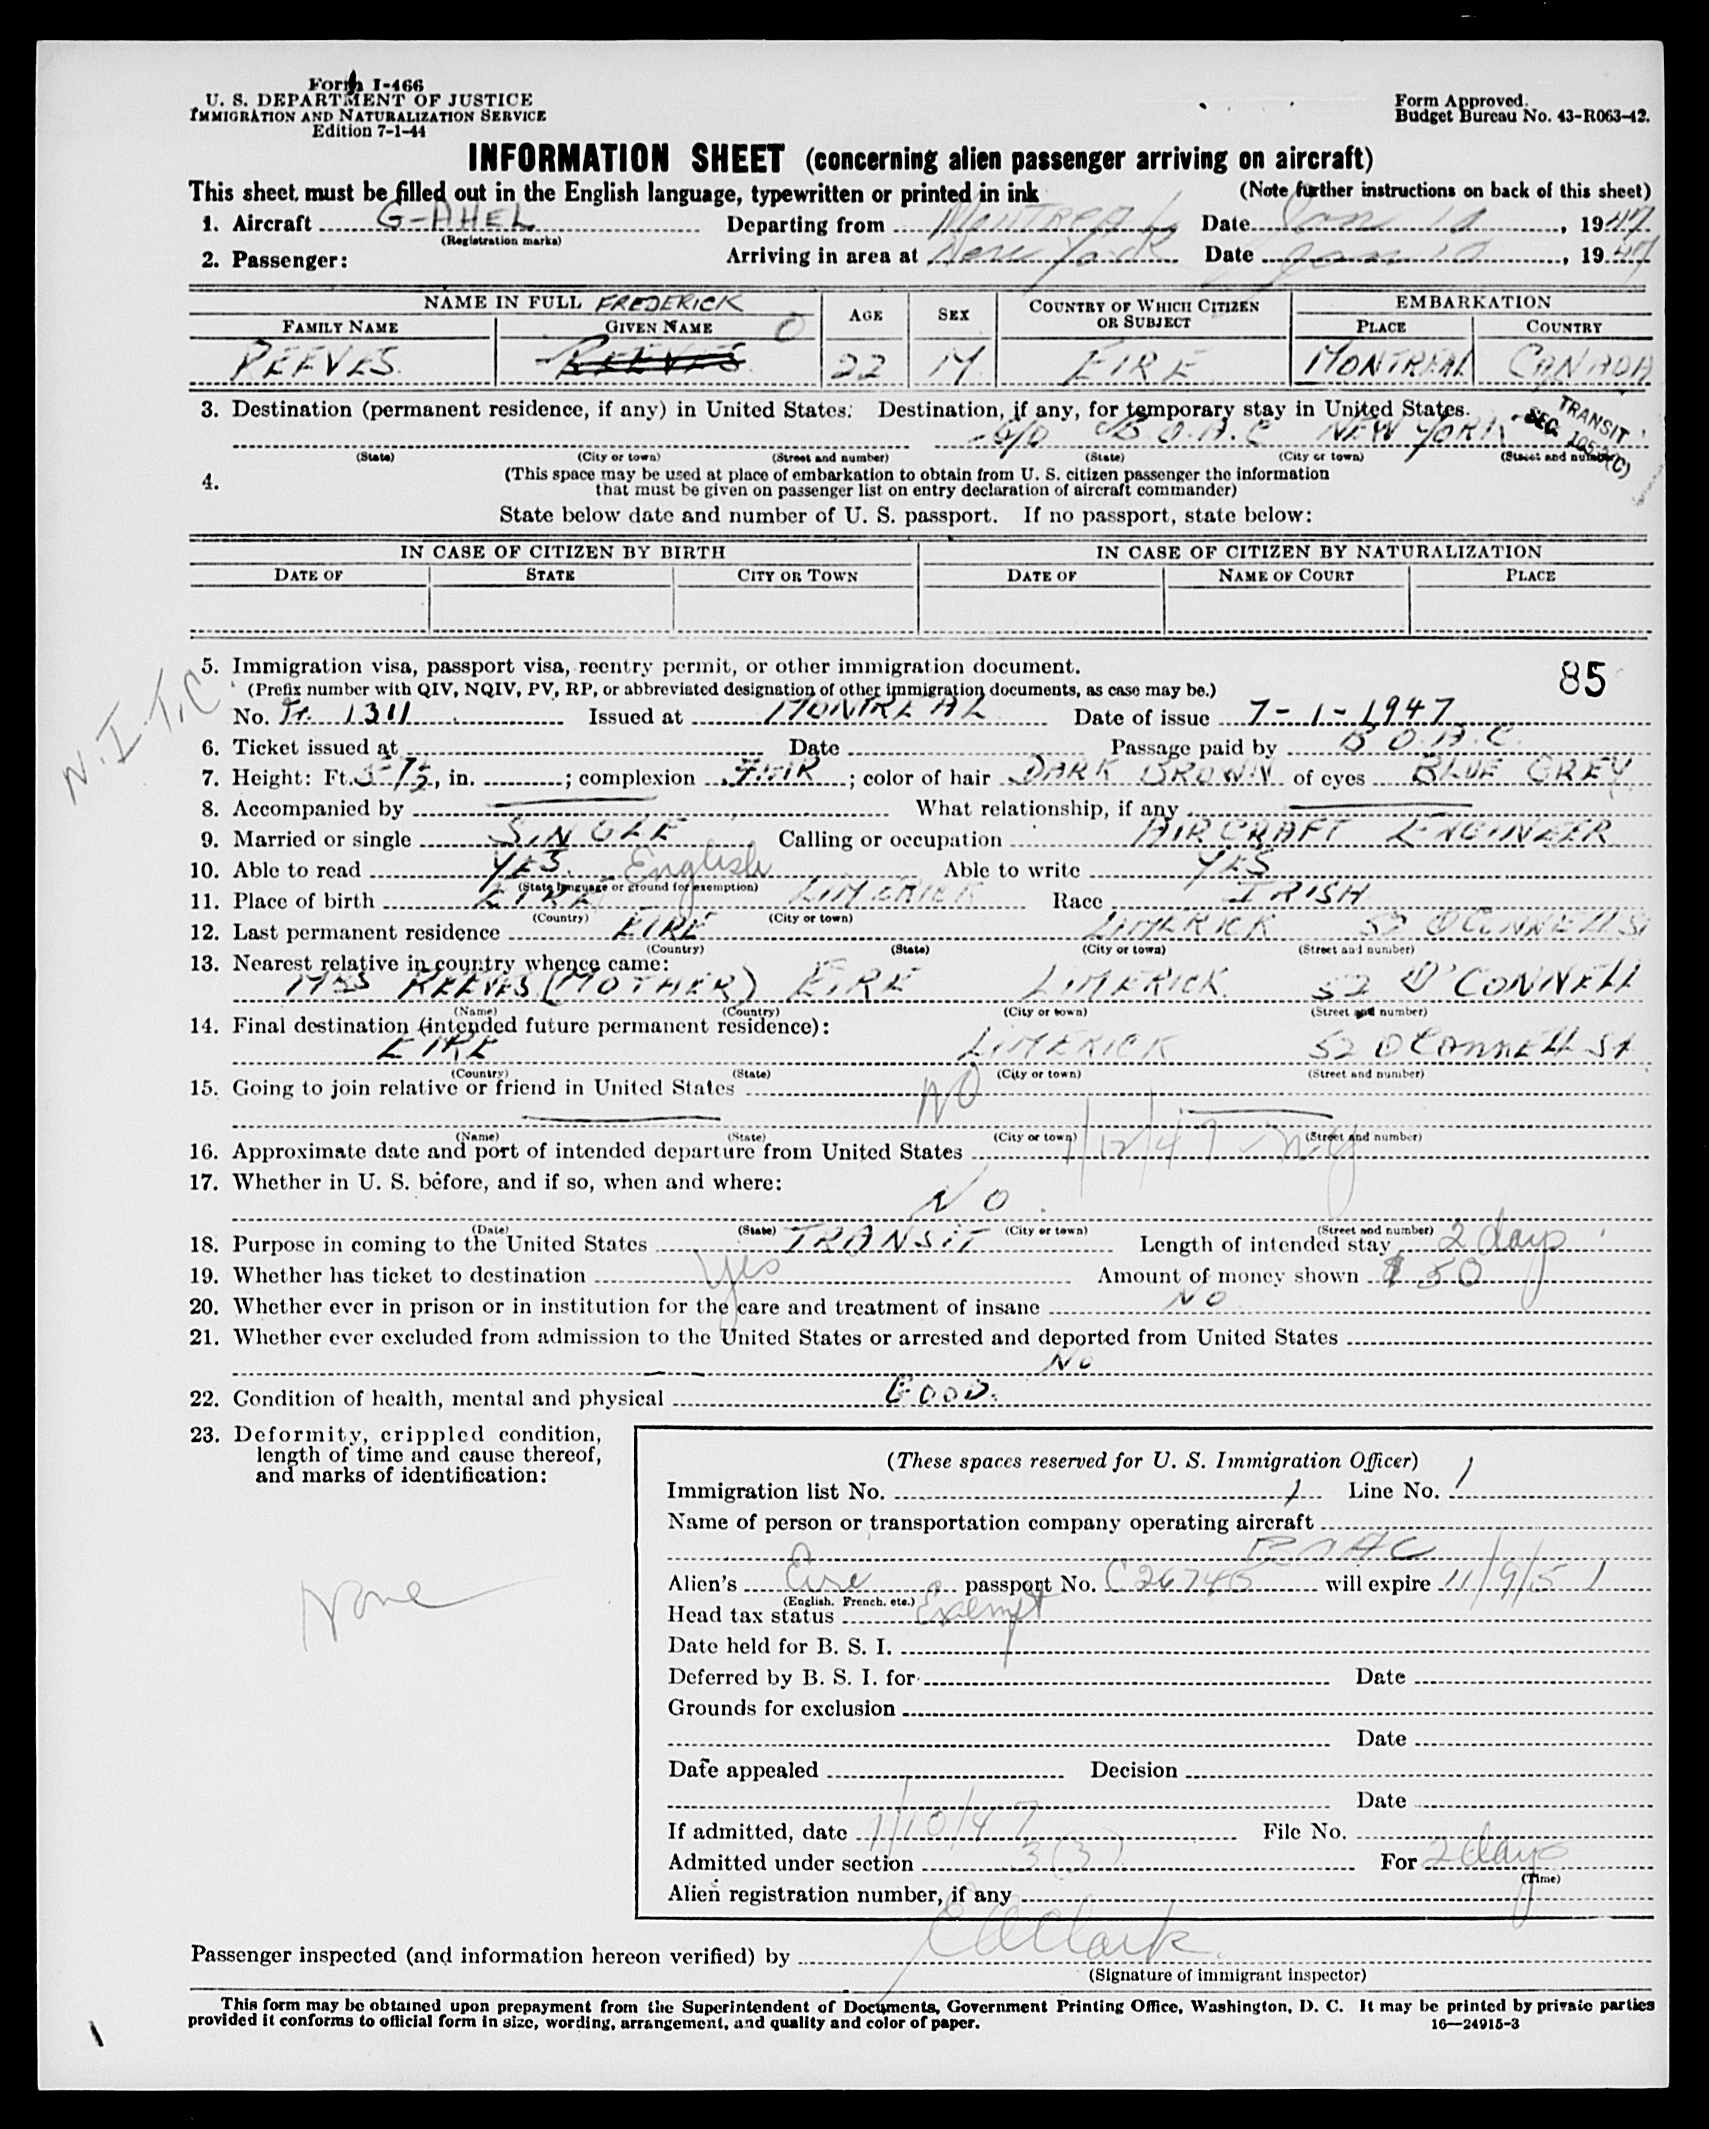 Form I-466
U. S. DEPARTMENT OF JUSTICE
IMMIGRATION AND NATURALIZATION SERVICE
Edition 7-1-44
Form Approved.
Budget Bureau No. 43-R063-42.
INFORMATION SHEET (concerning alien passenger arriving on aircraft)
This sheet must be filled out in the English language, typewritten or printed in ink (Note further instructions on back of this sheet)
1. Aircraft G-AHEL Departing from MONTREAL Date Jan 10, 1947
(Registration marks)
2. Passenger: Arriving in area at New York Date Jan 10, 1947
NAME IN FULL FREDERICK AGE SEX COUNTRY OF WHICH CITIZEN OR SUBJECT EMBARKATION
FAMILY NAME GIVEN NAME O PLACE COUNTRY
REEVES REEVES 22 M. EIRE MONTREAL CANADA
3. Destination (permanent residence, if any) in United States. Destination, if any, for temporary stay in United States.
c/o B.O.A.C NEW YORK
TRANSIT
SEC. 105.3(C)
(State) (City or town) (Street and number) (State) (City or town) (Street and number)
4. (This space may be used at place of embarkation to obtain from U. S. citizen passenger the information
that must be given on passenger list on entry declaration of aircraft commander)
State below date and number of U. S. passport. If no passport, state below:
IN CASE OF CITIZEN BY BIRTH IN CASE OF CITIZEN BY NATURALIZATION
DATE OF STATE CITY OR TOWN DATE OF NAME OF COURT PLACE
5. Immigration visa, passport visa, reentry permit, or other immigration document. 85
(Prefix number with QIV, NQIV, PV, RP, or abbreviated designation of other immigration documents, as case may be.)
N.I.T.C
No. Tr. 1311 Issued at MONTREAL Date of issue 7-1-1947
6. Ticket issued at Date Passage paid by B.O.A.C.
7. Height: Ft. 5-7½, in. ; complexion FAIR ; color of hair DARK BROWN of eyes BLUE GREY
8. Accompanied by What relationship, if any
9. Married or single SINGLE Calling or occupation AIRCRAFT ENGINEER
10. Able to read YES. English Able to write YES
(State language or ground for exemption)
11. Place of birth EIRE LIMERICK Race IRISH
(Country) (City or town)
12. Last permanent residence EIRE LIMERICK 52 OCONNELL St
(Country) (State) (City or town) (Street and number)
13. Nearest relative in country whence came:
MRS REEVES (MOTHER) EIRE LIMERICK 52 O'CONNELL
(Name) (Country) (City or town) (Street and number)
14. Final destination (intended future permanent residence):
EIRE LIMERICK 52 OCONNELL St
(Country) (State) (City or town) (Street and number)
15. Going to join relative or friend in United States NO
(Name) (State) (City or town) (Street and number)
16. Approximate date and port of intended departure from United States 1/12/47 - N.Y
17. Whether in U. S. before, and if so, when and where:
NO
(Date) (State) (City or town) (Street and number)
18. Purpose in coming to the United States TRANSIT Length of intended stay 2 days
19. Whether has ticket to destination yes Amount of money shown $50
20. Whether ever in prison or in institution for the care and treatment of insane NO
21. Whether ever excluded from admission to the United States or arrested and deported from United States
No
22. Condition of health, mental and physical GOOD.
23. Deformity, crippled condition,
length of time and cause thereof,
and marks of identification:
None
(These spaces reserved for U. S. Immigration Officer)
Immigration list No. 1 Line No. 1
Name of person or transportation company operating aircraft
BOAC
Alien's Eire passport No. C26746 will expire 11/9/51
(English, French, etc.)
Head tax status Exempt
Date held for B. S. I.
Deferred by B. S. I. for Date
Grounds for exclusion
Date
Date appealed Decision
Date
If admitted, date 1/10/47 File No.
Admitted under section 3(3) For 2 days
(Time)
Alien registration number, if any
Passenger inspected (and information hereon verified) by Clark
(Signature of immigrant inspector)
This form may be obtained upon prepayment from the Superintendent of Documents, Government Printing Office, Washington, D. C. It may be printed by private parties
provided it conforms to official form in size, wording, arrangement, and quality and color of paper. 16—24915-3